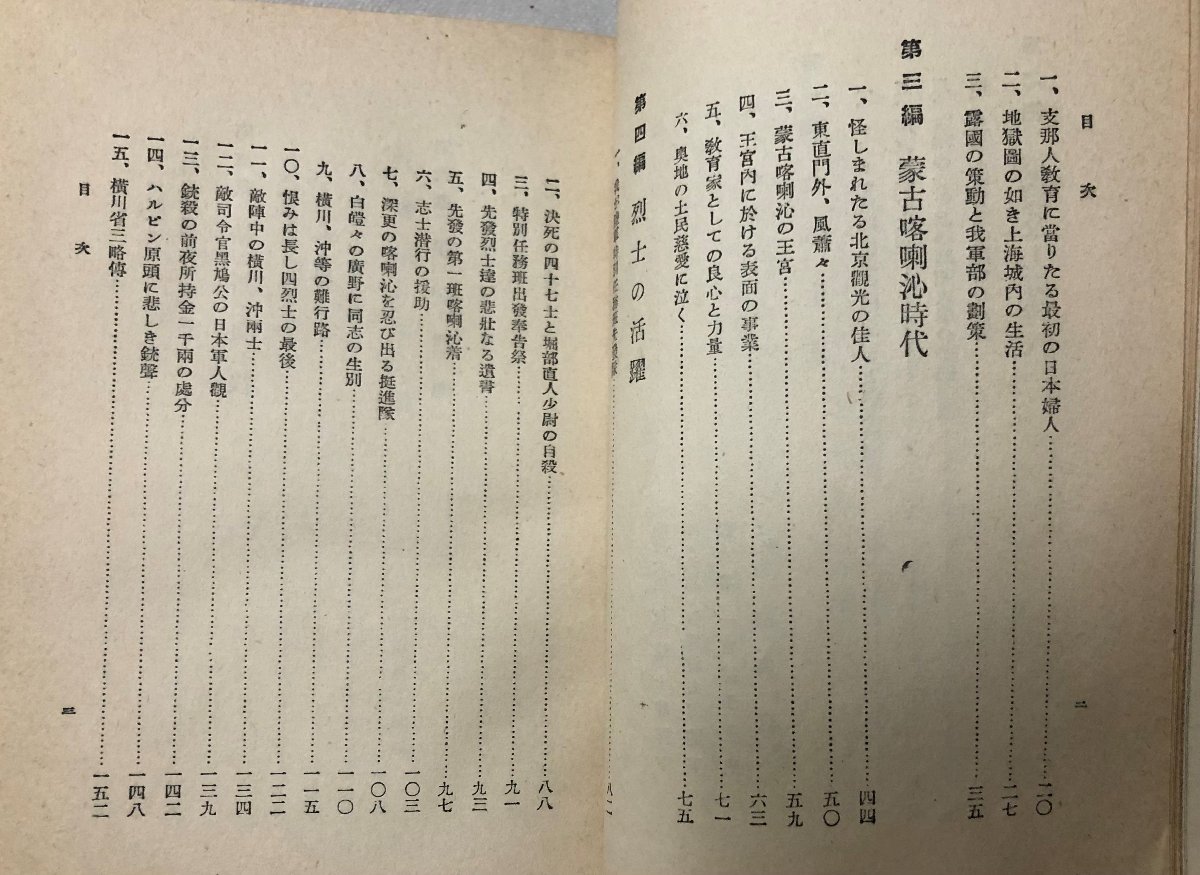 目次
一、支那人教育に當りたる最初の日本婦人……二〇
二、地獄圖の如き上海城內の生活……二七
三、露國の策動と我軍部の劃策……三五
第三編 蒙古喀喇沁時代
一、怪しまれたる北京觀光の佳人……四四
二、東直門外、風蕭々……五〇
三、蒙古喀喇沁の王宮……五九
四、王宮內に於ける表面の事業……六三
五、敎育家としての良心と力量……七一
六、奧地の土民慈愛に泣く……七五
第四編 烈士の活躍
二
二、決死の四十七士と堀部直人少尉の自殺……八八
三、特別任務班出發奉告祭……九一
四、先發烈士達の悲壯なる遺書……九三
五、先發の第一班喀喇沁着……九七
六、志士潛行の援助……一〇三
七、深更の喀喇沁を忍び出る挺進隊……一〇八
八、白皚々の廣野に同志の生別……一一〇
九、橫川、沖等の難行路……一一五
一〇、恨みは長し四烈士の最後……一二二
一一、敵陣中の橫川、沖兩士……一三四
一二、敵司令官黑鳩公の日本軍人觀……一三九
一三、銃殺の前夜所持金一千兩の處分……一四二
一四、ハルビン原頭に悲しき銃聲……一四八
一五、橫川省三略傳……一五二
目次
三